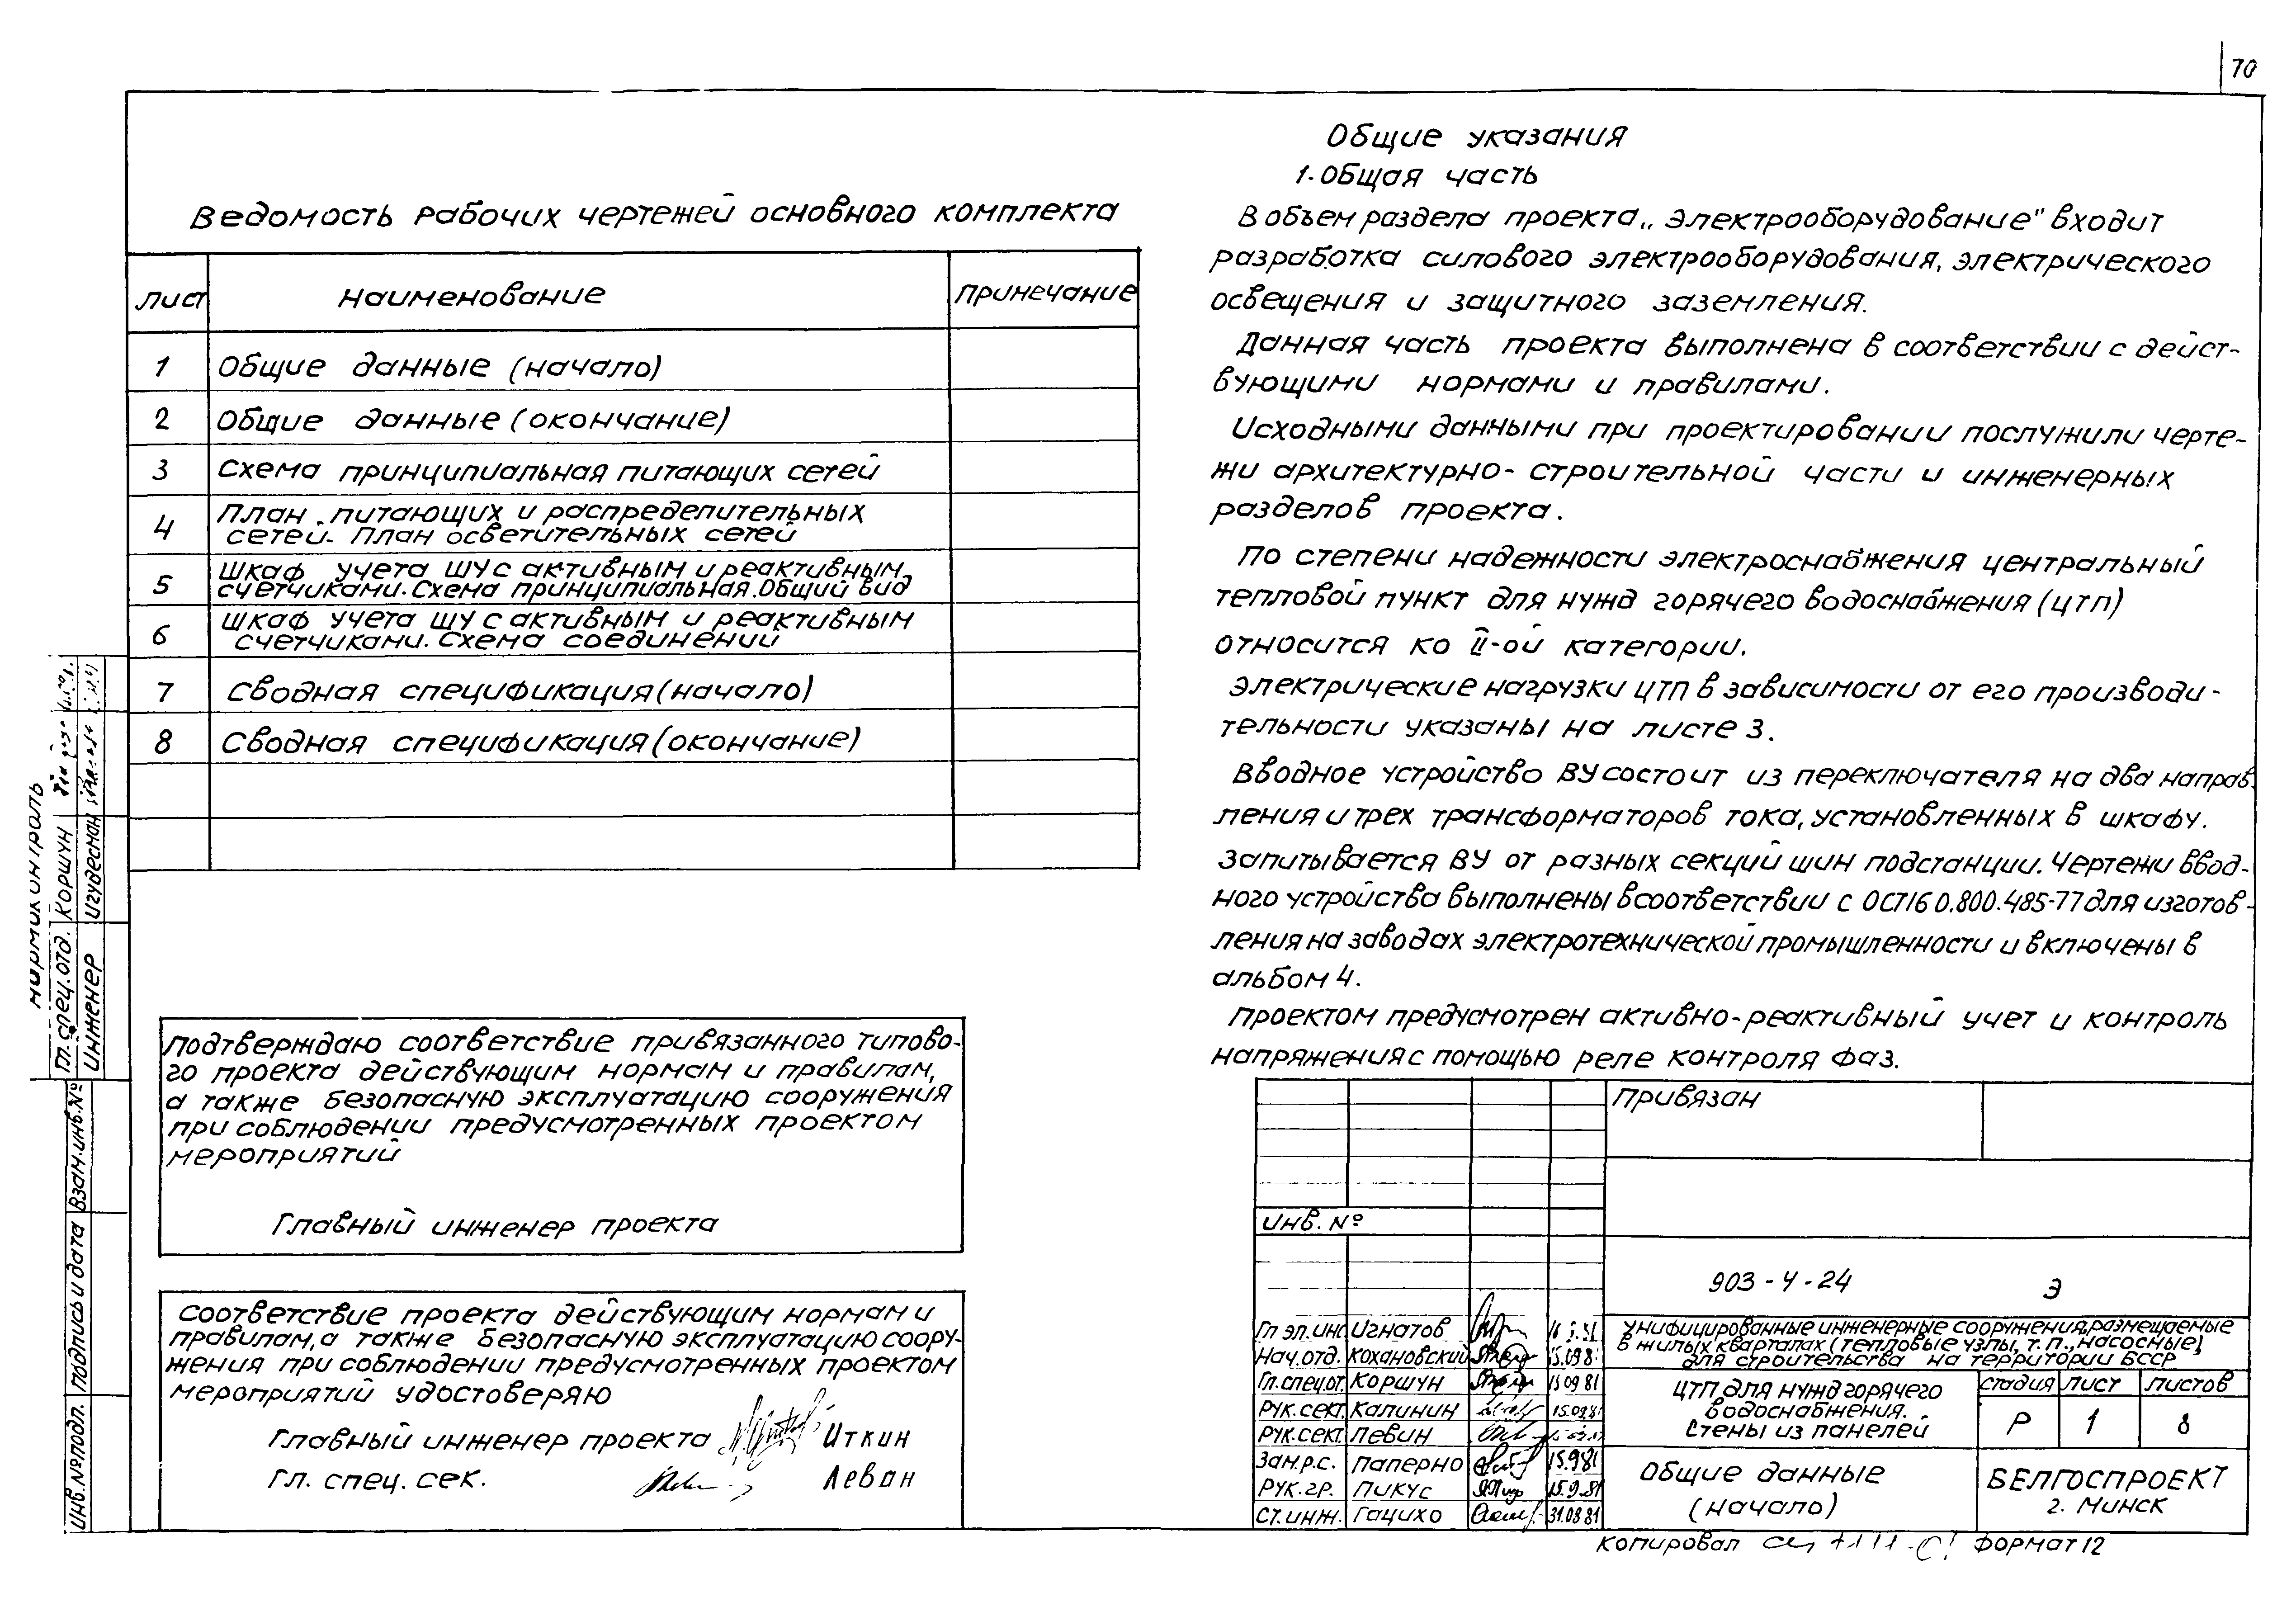 70
Ведомость рабочих чертежей основного комплекта
лист наименование примечание
1 Общие данные (начало)
2 Общие данные (окончание)
3 Схема принципиальная питающих сетей
4 План питающих и распределительных
сетей. План осветительных сетей
5 Шкаф учета ШУ с активным и реактивным
счетчиками. Схема принципиальная. Общий вид
6 Шкаф учета ШУ с активным и реактивным
счетчиками. Схема соединений
7 Сводная спецификация (начало)
8 Сводная спецификация (окончание)
Подтверждаю соответствие привязанного типово-
го проекта действующим нормам и правилам,
а также безопасную эксплуатацию сооружения
при соблюдении предусмотренных проектом
мероприятий
Главный инженер проекта
Соответствие проекта действующим нормам и
правилам, а также безопасную эксплуатацию соору-
жения при соблюдении предусмотренных проектом
мероприятий удостоверяю
Главный инженер проекта Иткин
Гл. спец. сек. Леван
Общие указания
1. Общая часть
В объем раздела проекта „Электрооборудование" входит
разработка силового электрооборудования, электрического
освещения и защитного заземления.
Данная часть проекта выполнена в соответствии с дейст-
вующими нормами и правилами.
Исходными данными при проектировании послужили черте-
жи архитектурно-строительной части и инженерных
разделов проекта.
По степени надежности электроснабжения центральный
тепловой пункт для нужд горячего водоснабжения (ЦТП)
относится ко II-ой категории.
Электрические нагрузки ЦТП в зависимости от его производи-
тельности указаны на листе 3.
Вводное устройство ВУ состоит из переключателя на два направ-
ления и трех трансформаторов тока, установленных в шкафу.
Запитывается ВУ от разных секций шин подстанции. Чертежи ввод-
ного устройства выполнены в соответствии с ОСТ16 0.800.485-77 для изготов-
ления на заводах электротехнической промышленности и включены в
альбом 4.
Проектом предусмотрен активно-реактивный учет и контроль
напряжения с помощью реле контроля фаз.
Привязан
Инв. №
903-4-24 Э
Гл эл. инс Игнатов
Нач. отд. Кохановский 15.09.81
Гл. спец. от. Коршун 15 09 81
Рук. сект. Калинин 15.09.81
Рук. сект. Левин
Зам. р.с. Паперно 15.9.81
Рук. гр. Пикус 15.9.81
Ст. инж. Гацихо 31.08 81
Унифицированные инженерные сооружения, размещаемые
в жилых кварталах (тепловые узлы, т. п., насосные)
для строительства на территории БССР
ЦТП для нужд горячего
водоснабжения.
Стены из панелей
стадия лист листов
Р 1 8
Общие данные
(начало)
БЕЛГОСПРОЕКТ
г. Минск
Копировал Формат 12
нормоконтроль
Гл. спец. отд. Коршун
Инженер
Взам. инв. №
Подпись и дата
Инв. № подл.